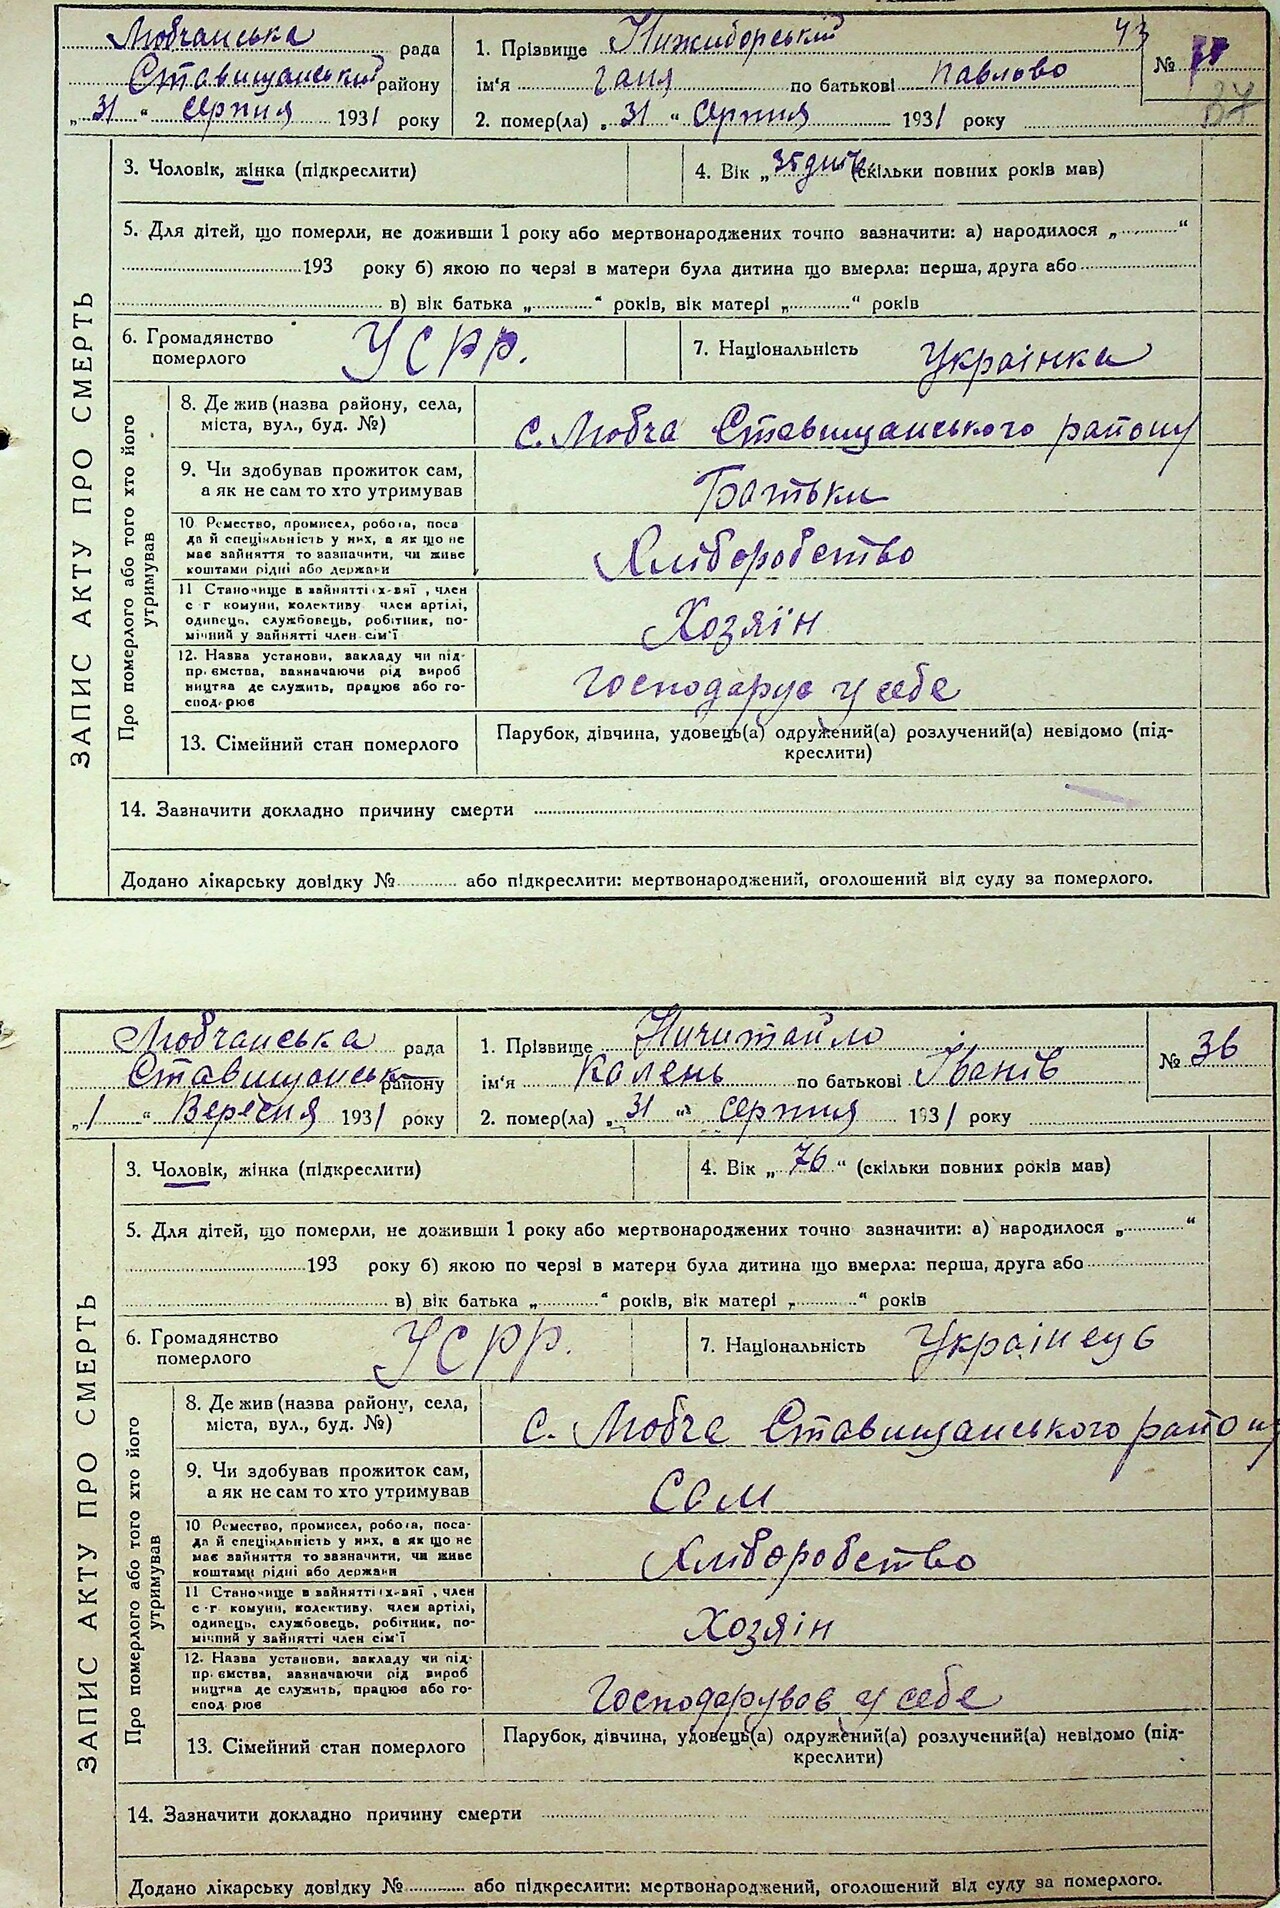 Любчанська рада
Ставищанський району
„ 31 “ серпня 1931 року
1. Прізвище Нижиборський
ім'я Ганя по батькові Павлово
2. помер(ла) „ 31 “ серпня 1931 року
43
№
37
ЗАПИС АКТУ ПРО СМЕРТЬ
3. Чоловік, жінка (підкреслити)
4. Вік „ 35 днів (скільки повних років мав)
5. Для дітей, що померли, не доживши 1 року або мертвонароджених точно зазначити: а) народилося „ “
193 року б) якою по черзі в матери була дитина що вмерла: перша, друга або
в) вік батька „ “ років, вік матері „ “ років
6. Громадянство померлого УСРР.
7. Національність Українка
Про померлого або того хто його утримував
8. Де жив (назва району, села,
міста, вул., буд. №)
с. Любча Ставищанського району
9. Чи здобував прожиток сам,
а як не сам то хто утримував
Батьки
10 Ремество, промисел, робота, поса
да й спеціяльність у них, а як що не
має зайняття то зазначити, чи живе
коштами рідні або держави
Хліборобство
11 Становище в зайнятті х-вяї, член
с-г комуни, колективу член артілі,
одинець, службовець, робітник, по-
мічний у зайнятті член сім'ї
Хозяїн
12. Назва установи, закладу чи під-
пр.ємства, вазначаючи рід вироб
ництва де служить, працює або го-
спод.рює
Господарує у себе
13. Сімейний стан померлого
Парубок, дівчина, удовець(а) одружений(а) розлучений(а) невідомо (під-
креслити)
14. Зазначити докладно причину смерти
Додано лікарську довідку № або підкреслити: мертвонароджений, оголошений від суду за померлого.
Любчанська рада
Ставищанськ району
„ 1 “ Вересня 1931 року
1. Прізвище Ничитайло
ім'я Калень по батькові Іванів
2. помер(ла) „ 31 “ серпня 1931 року
№ 36
ЗАПИС АКТУ ПРО СМЕРТЬ
3. Чоловік, жінка (підкреслити)
4. Вік „ 76 “ (скільки повних років мав)
5. Для дітей, що померли, не доживши 1 року або мертвонароджених точно зазначити: а) народилося „ “
193 року б) якою по черзі в матери була дитина що вмерла: перша, друга або
в) вік батька „ “ років, вік матері „ “ років
6. Громадянство померлого УСРР.
7. Національність Українець
Про померлого або того хто його утримував
8. Де жив (назва району, села,
міста, вул., буд. №)
с. Любче Ставищанського району
9. Чи здобував прожиток сам,
а як не сам то хто утримував
Сам
10 Ремество, промисел, робота, поса-
да й спеціяльність у них, а як що не
має зайняття то зазначити, чи живе
коштами рідні або держави
Хліборобство
11 Становище в зайнятті х-вяї, член
с-г комуни, колективу, член артілі,
одинець, службовець, робітник, по-
мічний у зайнятті член сім'ї
Хозяїн
12. Назва установи, закладу чи під-
пр.ємства, зазначаючи рід вироб
ництва де служить, працює або го-
спод рює
Господарував у себе
13. Сімейний стан померлого
Парубок, дівчина, удовець(а) одружений(а) розлучений(а) невідомо (під-
креслити)
14. Зазначити докладно причину смерти
Додано лікарську довідку № або підкреслити: мертвонароджений, оголошений від суду за померлого.